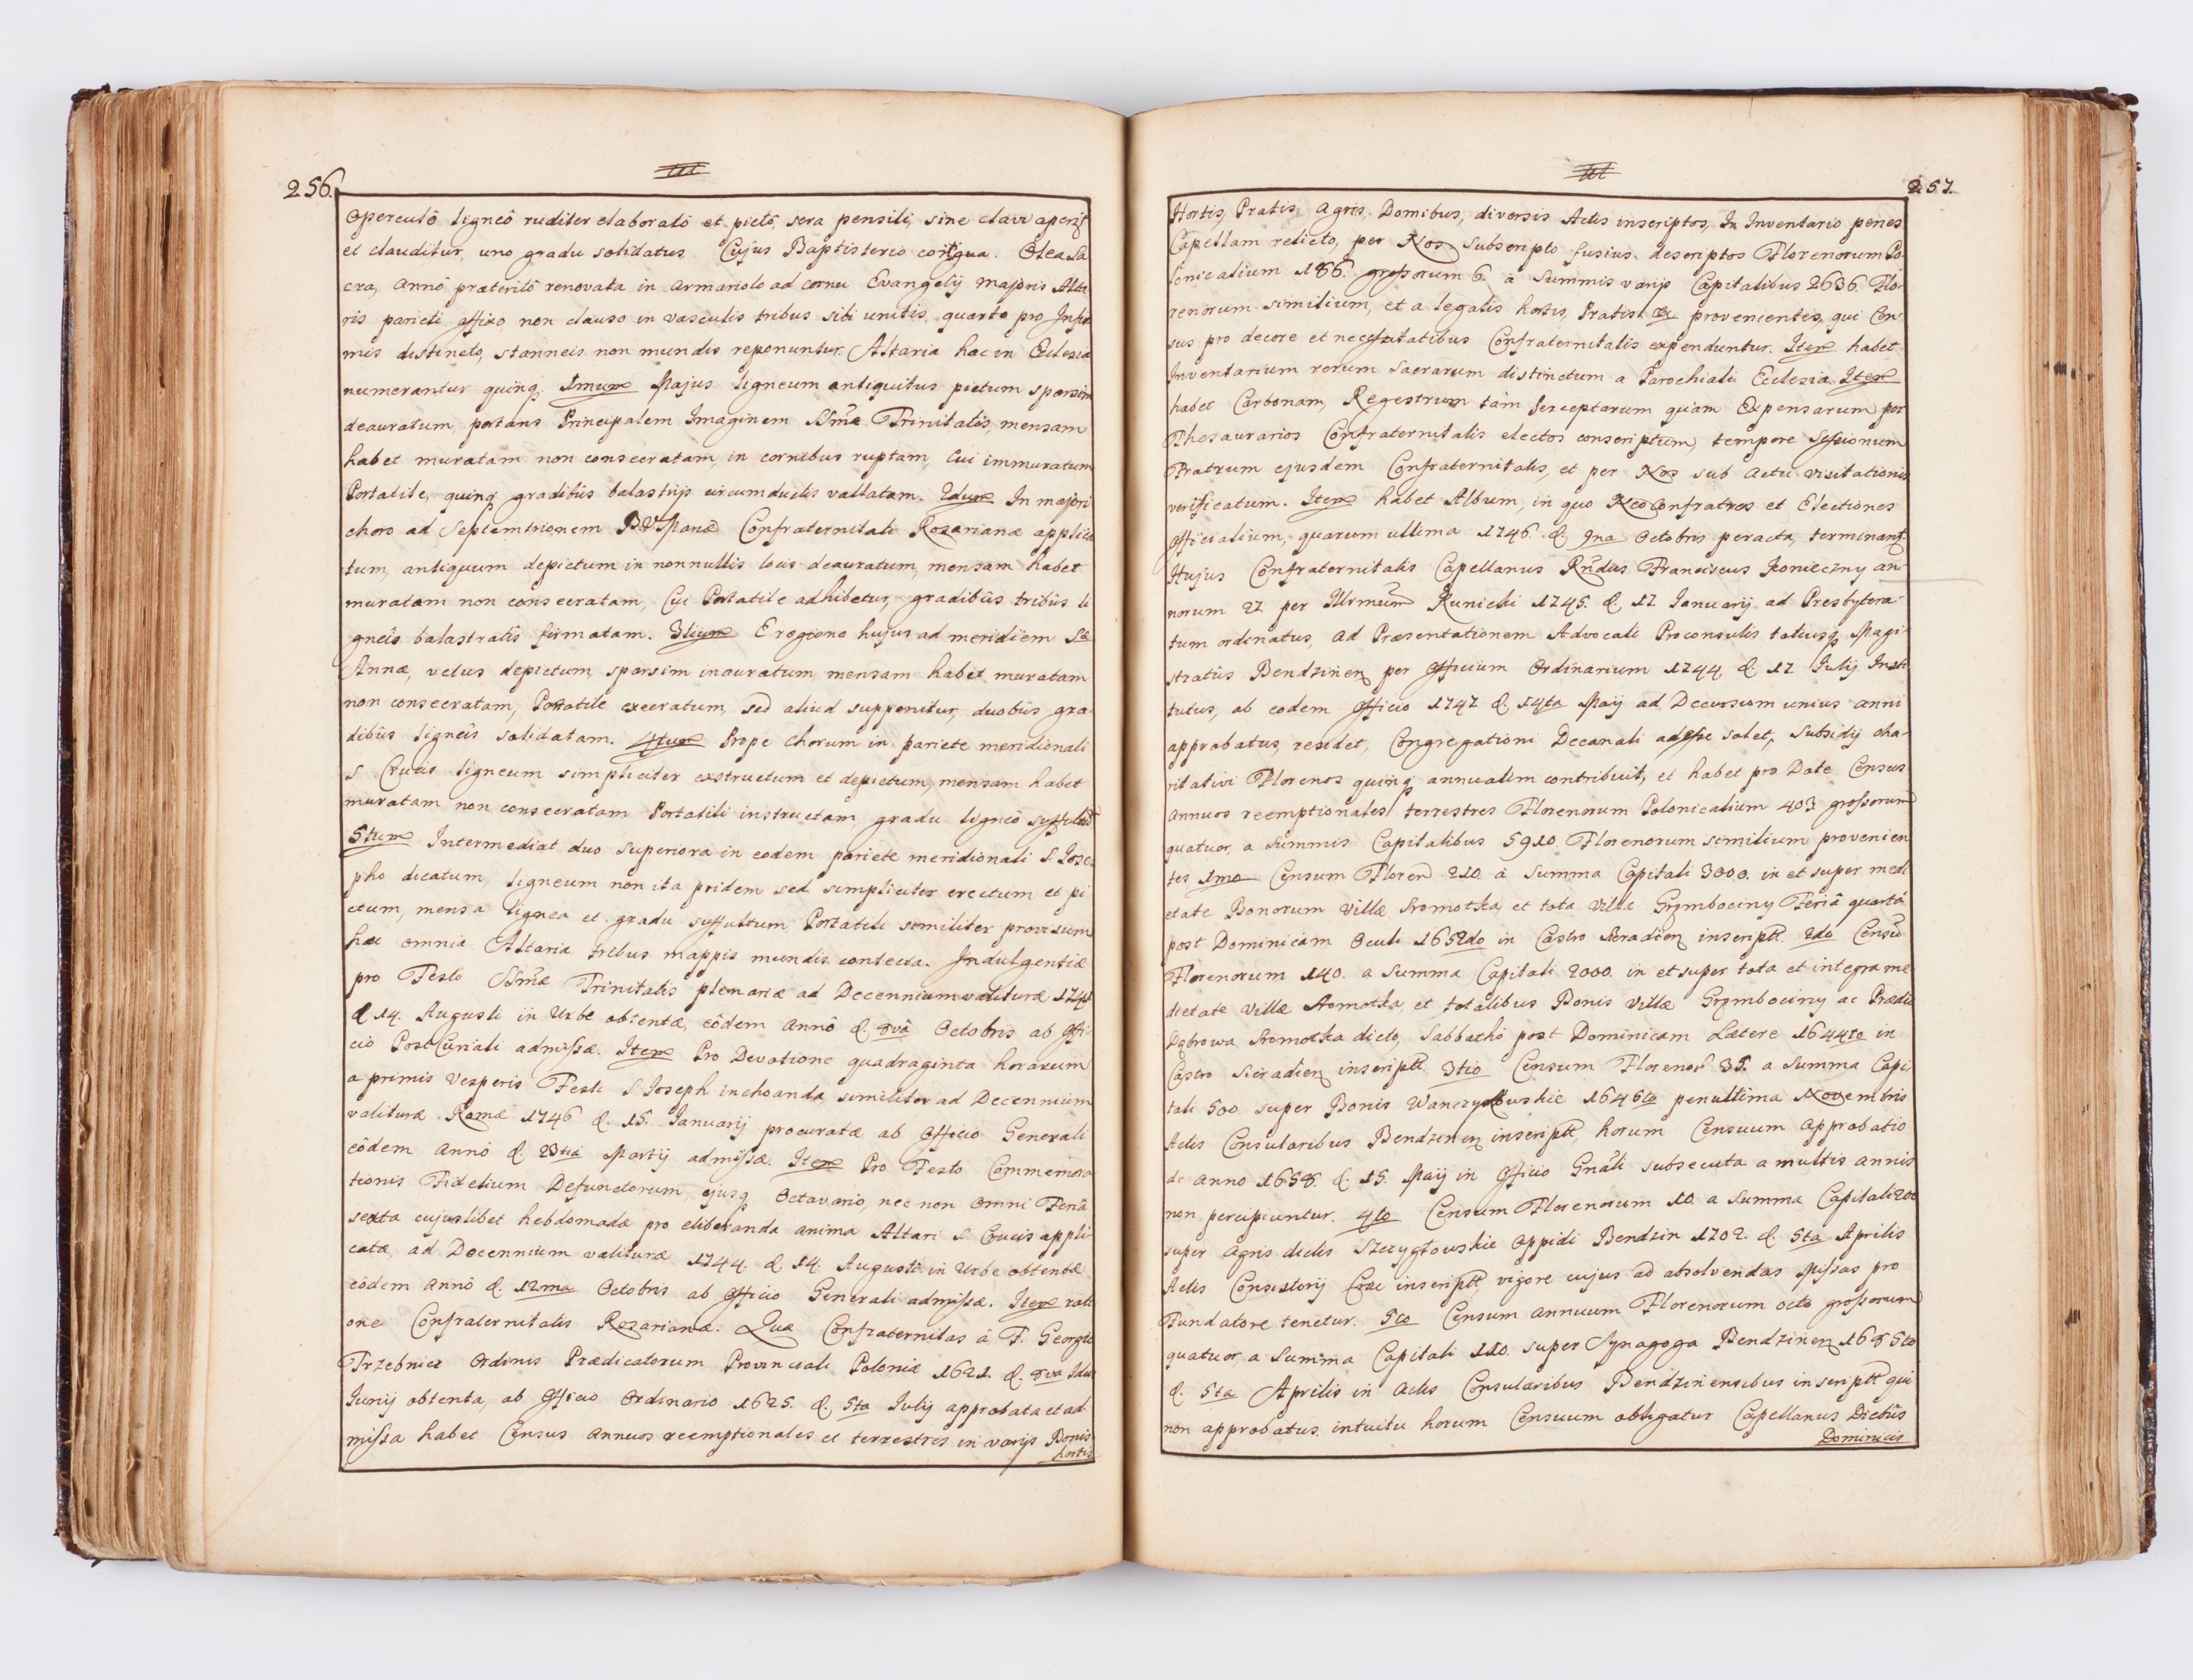 256.
operculô ligneô ruditer elaboratô et pictô, sera pensili, sine clavi aperit
et clauditur, uno gradu solidatus. Cujus Baptisterio contigua. Olea Sa
cra, annô præteritô renovata in armariolo ad cornu Evangelij majoris Alta
ris parieti affixo non clauso in vasculis tribus sibi unitis, quarto pro Infir
mis distincto, stanneis non mundis reponuntur. Altaria hac in Ecclesia
numerantur quinq; 1mum Majus ligneum antiquitus pictum sparsim
deauratum, portans Principalem Imaginem SSmæ Trinitatis, mensam
habet muratam non consecratam, in cornibus ruptam, Cui immuratum
Portatile, quinq gradibus balastrijs circumductis vallatam. 2dum In majori
choro ad Septemtrionem BVMariæ Confraternitati Rozarianæ applica
tum, antiquum depictum in nonnullis locis deauratum, mensam habet
muratam non consecratam, Cui Portatile adhibetur, gradibûs tribûs li
gneîs balastratîs firmatam. 3tium E regione hujus ad meridiem Sæ
Annæ, vetus depictum, sparsim inauratum, mensam habet muratam
non consecratam, Portatile execratum, sed aliud supponitur, duobûs gra
dibûs ligneîs solidatam. 4tum Prope Chorum in pariete meridionali
S. Crucis ligneum simpliciter exstructum et depictum, mensam habet
muratam non consecratam Portatili instructam, gradu ligneô suffultã
5tum Intermediat duo superiora in eodem pariete meridionali S. Jose
pho dicatum, ligneum non ita pridem sed simpliciter erectum et pi
ctum, mensa lignea et gradu suffultum Portatili similiter provisum
hæc omnia Altaria tribus mappis mundis contecta. Indulgentiæ
pro Festo SSmæ Trinitatis plenariæ ad Decennium valituræ 1744
d. 14. Augusti in Urbe obtentæ, eôdem annô d. 8vâ Octobris ab Offi
cio Post Curiali admissæ. Item Pro Devotione quadraginta horarum
a primis Vesperis Festi S. Joseph inchoanda, similiter ad Decennium
valituræ Romæ 1746 d. 15. Januarij procuratæ ab Officio Generali
eôdem annô d. 23tiâ Martij admissæ. Item Pro Festo Commemora
tionis Fidelium Defunctorum, ejusq Octavario, nec non omni Feriâ
sexta cujuslibet hebdomadæ pro eliberanda anima Altari S. Crucis appli
catæ, ad Decennium valituræ 1744 d. 14. Augusti in Urbe obtentæ
eôdem annô d. 12ma Octobris ab Officio Generali admissæ. Item rati
one Confraternitatis Rozarianæ. Quæ Confraternitas â F. Georgio
Trzebnic Ordinis Prædicatorum Provinciali Poloniæ 1621. d. 8va Idus
Junij obtenta, ab Officio Ordinario 1625. d. 5ta Julij approbata et ad
missa habet Census annuos reemptionales et terrestres in varijs Bonis
hortis
257.
Hortis, Pratis, Agris, Domibus, diversis Actis inscriptos, In Inventario penes
Capellam relicto, per Nos subscripto fusius descriptos Florenorum Po
lonicalium 186. grossorum 6. â Summis varijs Capitalibus 2636. Flo-
renorum similium, et a legatis hortis, Pratis &c provenientes, qui Cen-
sus pro decore et necessitatibus Confraternitatis expenduntur. Item habet
Inventarium rerum Sacrarum distinctum a Parochiali Ecclesia. Item
habet Carbonam, Regestrum tàm Perceptarum quàm Expensarum per
Thesaurarios Confraternitatis electos conscriptum, tempore Sessionum
Fratrum ejusdem Confraternitatis, et per Nos sub actu visitationis
verificatum. Item habet Album, in quo Neoconfratres et Electiones
Officialium, quarum ultima 1746 d. 9na Octobris peracta, terminant
Hujus Confraternitatis Capellanus Rndus Franciscus Konieczny an-
norum 27. per Illrmum Kunicki 1745. d. 17 Januarij ad Presbytera-
tum ordinatus, ad Præsentationem Advocati Proconsulis totiusq Magi-
stratûs Bendzinen per Officium Ordinarium 1744 d. 17 Julij Insti
tutus, ab eodem Officio 1747 d. 14ta Maij ad Decursum unius anni
approbatus, residet, Congregationi Decanali adesse solet, Subsidij cha-
ritativi Florenos quinq annuatim contribuit, et habet pro Date Census
annuos reemptionales terrestres Florenorum Polonicalium 403 grossorum
quatuor, a Summis Capitalibus 5910. Florenorum similium provenien
tes 1mo Censum Floren 210. â Summa Capitali 3000. in et super medi
etate Bonorum Villæ Sromotka et tota Villa Grzmbociny Feriâ quartâ
post Dominicam Oculi 1652do in Castro Siradien inscript. 2do Censũ
Florenorum 140. a Summa Capitali 2000. in et super tota et integra me
dietate Villæ Sromotka, et totalibus Bonis Villæ Grzmbociny ac Prædio
Dąbrowa Sromotka dicto, Sabbathô post Dominicam Lætere 1644to in
Castro Sieradien inscript. 3tio Censum Florenor 35. a Summa Capi
tali 500. super Bonis Wanczykowskie 1646to penultima Novembris
Actis Consularibus Bendzinen inscript, horum Censuum approbatio
de anno 1658. d. 15. Maij in Officio Gnãli subsecuta a multis annis
non percipiuntur. 4to Censum Florenorum 10. a Summa Capitali 200
super agris dictis Szczygłowskie Oppidi Bendzin 1702. d. 5ta Aprilis
Actis Consistorij Crac inscript, vigore cujus ad absolvendas Missas pro
Fundatore tenetur. 5to Censum annuum Florenorum octo grossorum
quatuor, a Summa Capitali 110. super Synagoga Bendzinen 1685to
d. 5ta Aprilis in Actis Consularibus Bendzinensibus inscript qui
non approbatus. intuitu horum Censuum obligatur Capellanus Diebûs
Dominicis